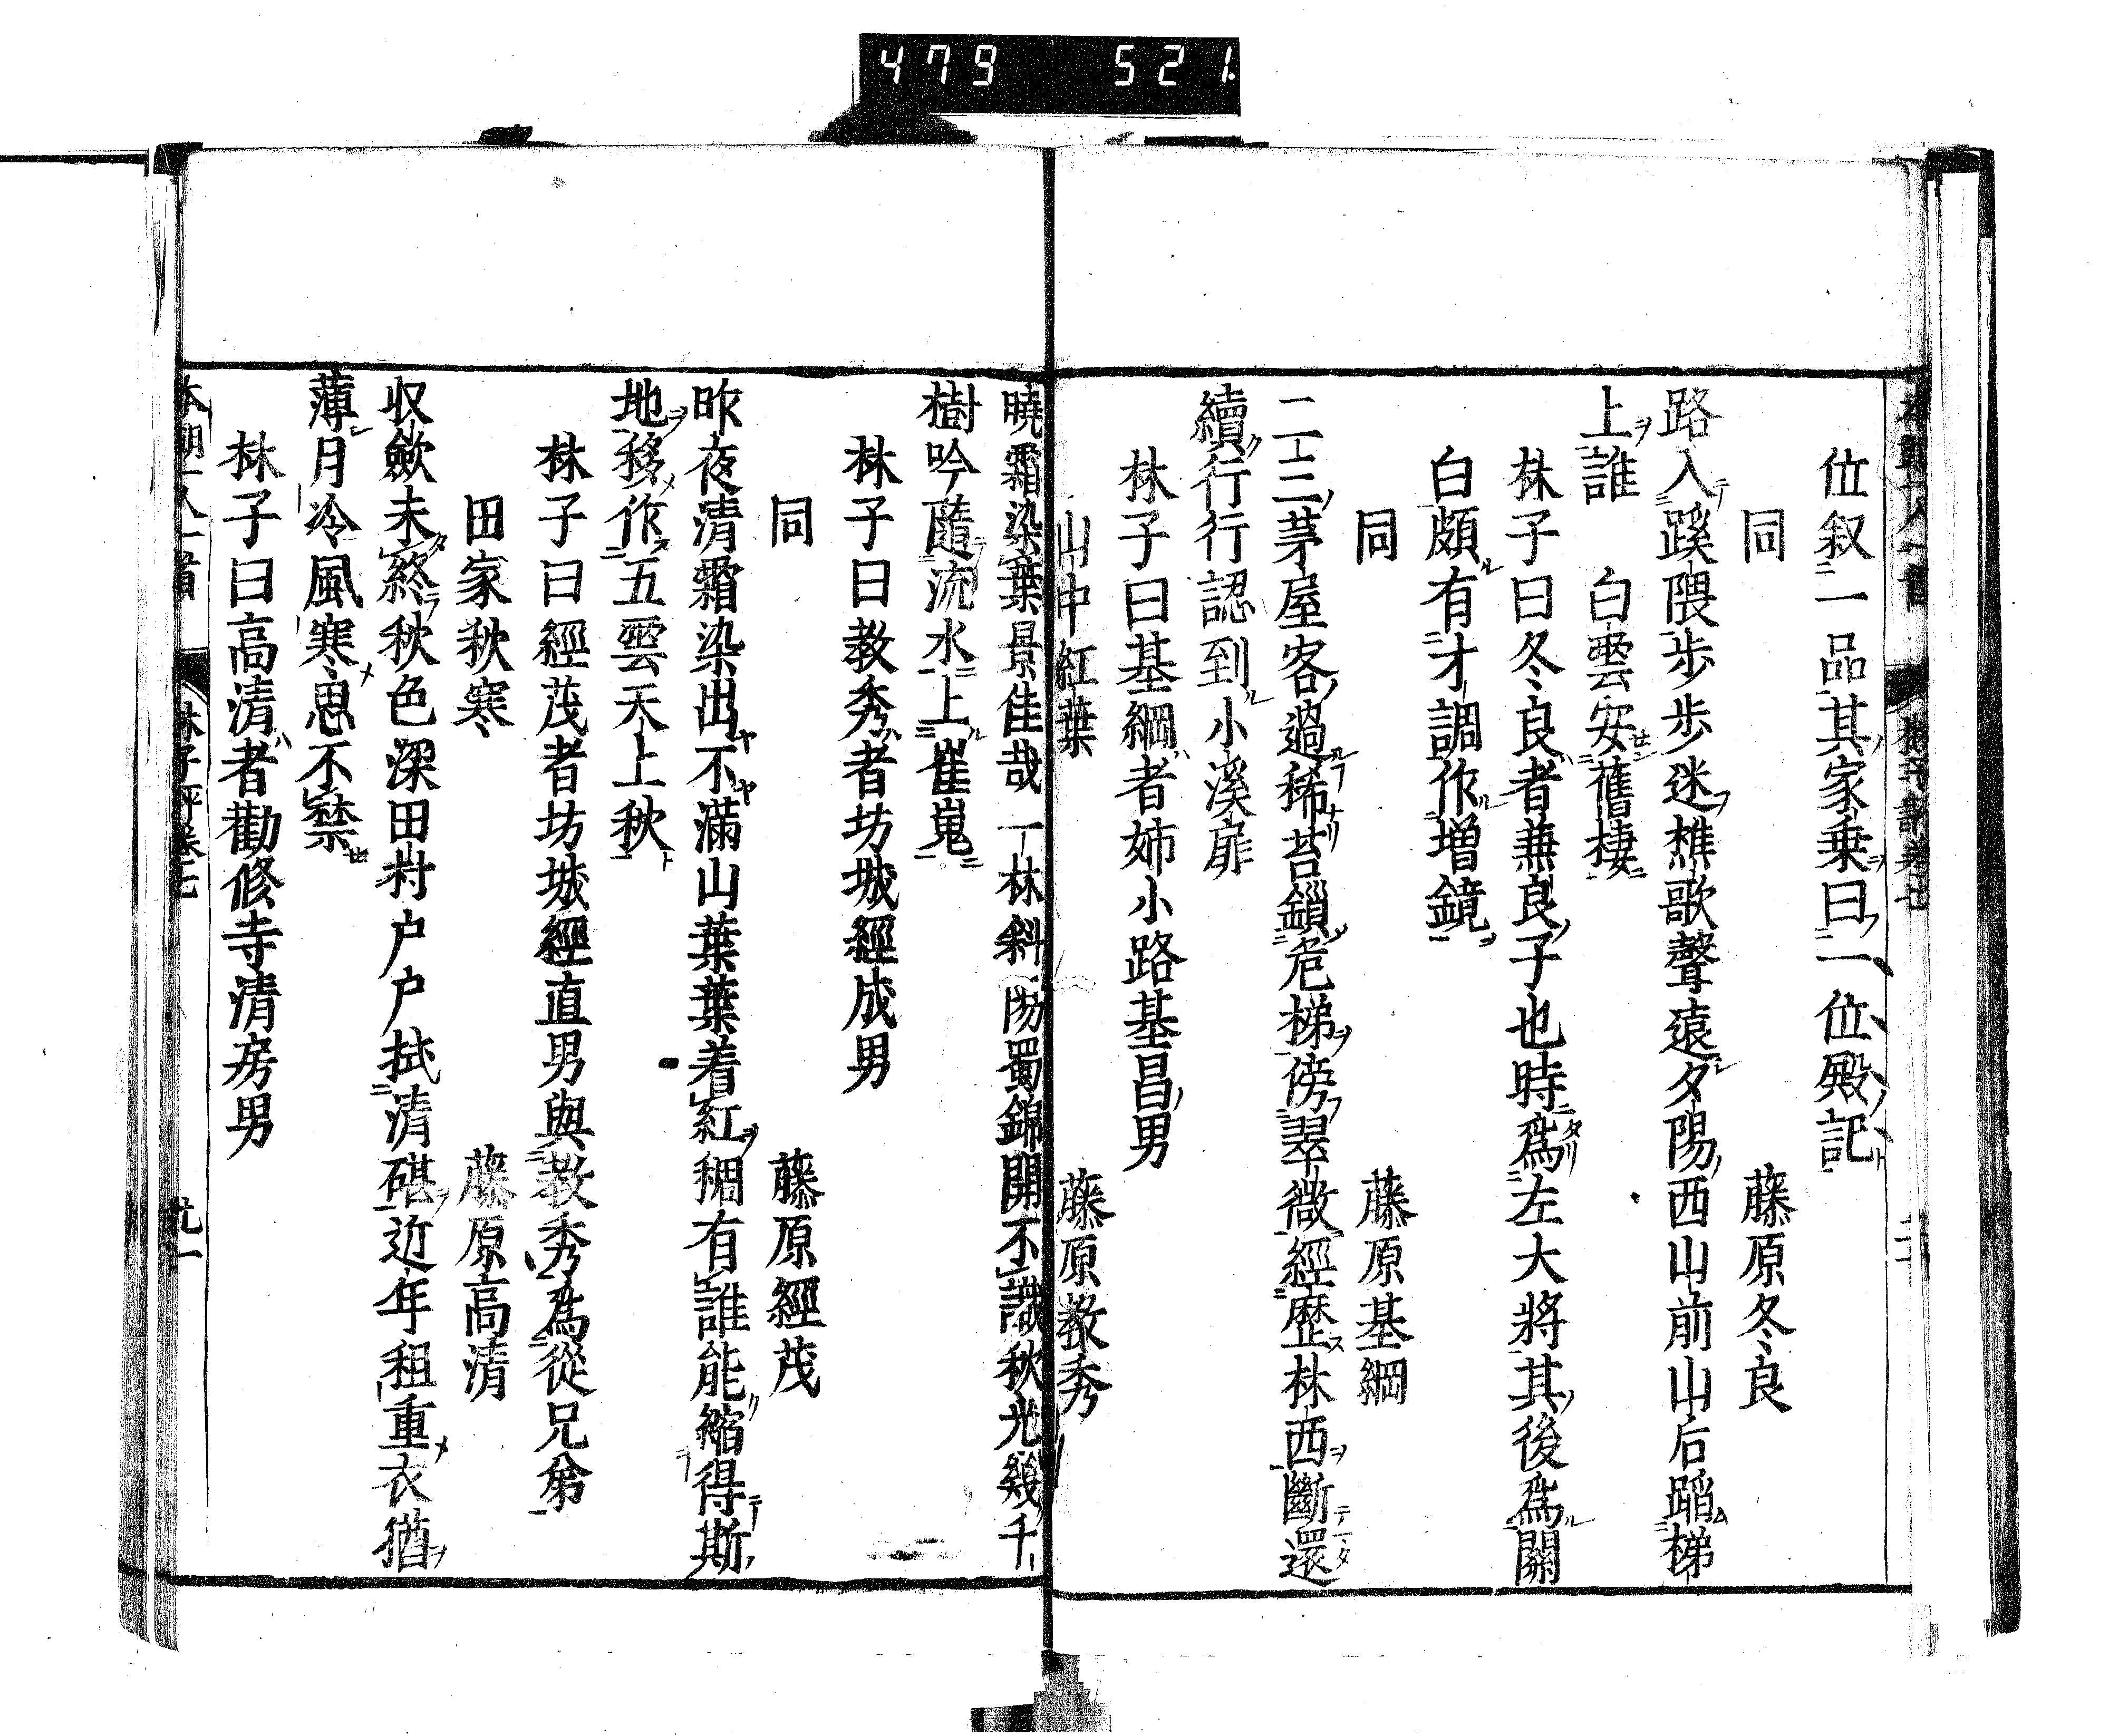 479 521
位叙一品其家乗曰二位殿記
同 藤原冬良
路入蹊隈歩歩迷樵歌聲遠夕陽西山前山后蹈梯
上誰 白雲安舊棲
林子曰冬良者兼良子也時爲左大將其後爲關
白頗有才調作增鏡
同 藤原基綱
二三茅屋客過稀苔鎖危梯傍翠微經歷林西斷還
續行行認到小溪扉
林子曰基綱者姉小路基昌男
山中紅葉 藤原教秀
曉霜染葉景佳哉一林斜陽蜀錦開不識秋光幾千
樹吟隨流水上崔嵬
林子曰教秀者坊城經成男
同 藤原經茂
昨夜清霜染出不滿山葉葉着紅稠有誰能縮得斯
地移作五雲天上秋
林子曰經茂者坊城經直男與教秀爲從兄弟
田家秋寒 藤原高清
収斂未終秋色深田村戸戸拭清碪近年租重衣猶
薄月冷風寒思不禁
林子曰高清者勸修寺清房男
本朝一人一首 林子評卷七 九一